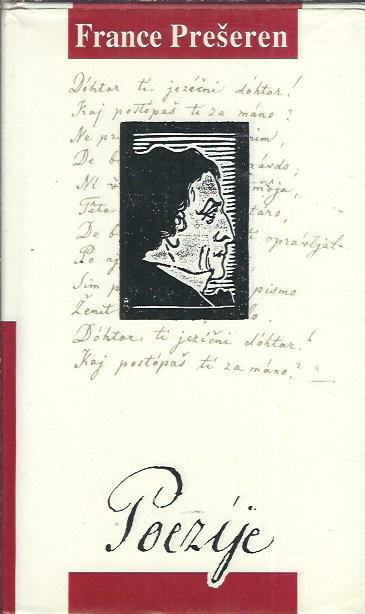 France Prešeren
Dóhtar ti jezíčni dóhtar!
Kaj postópaš ti za máno?
Ne
De
Ni
Téta
De b opravljàl-
Po nj
Sim p písmo
Ženit
Dóhtar, ti jezíčni dóhtar!
Kaj postópaš ti za máno? "
Poezije